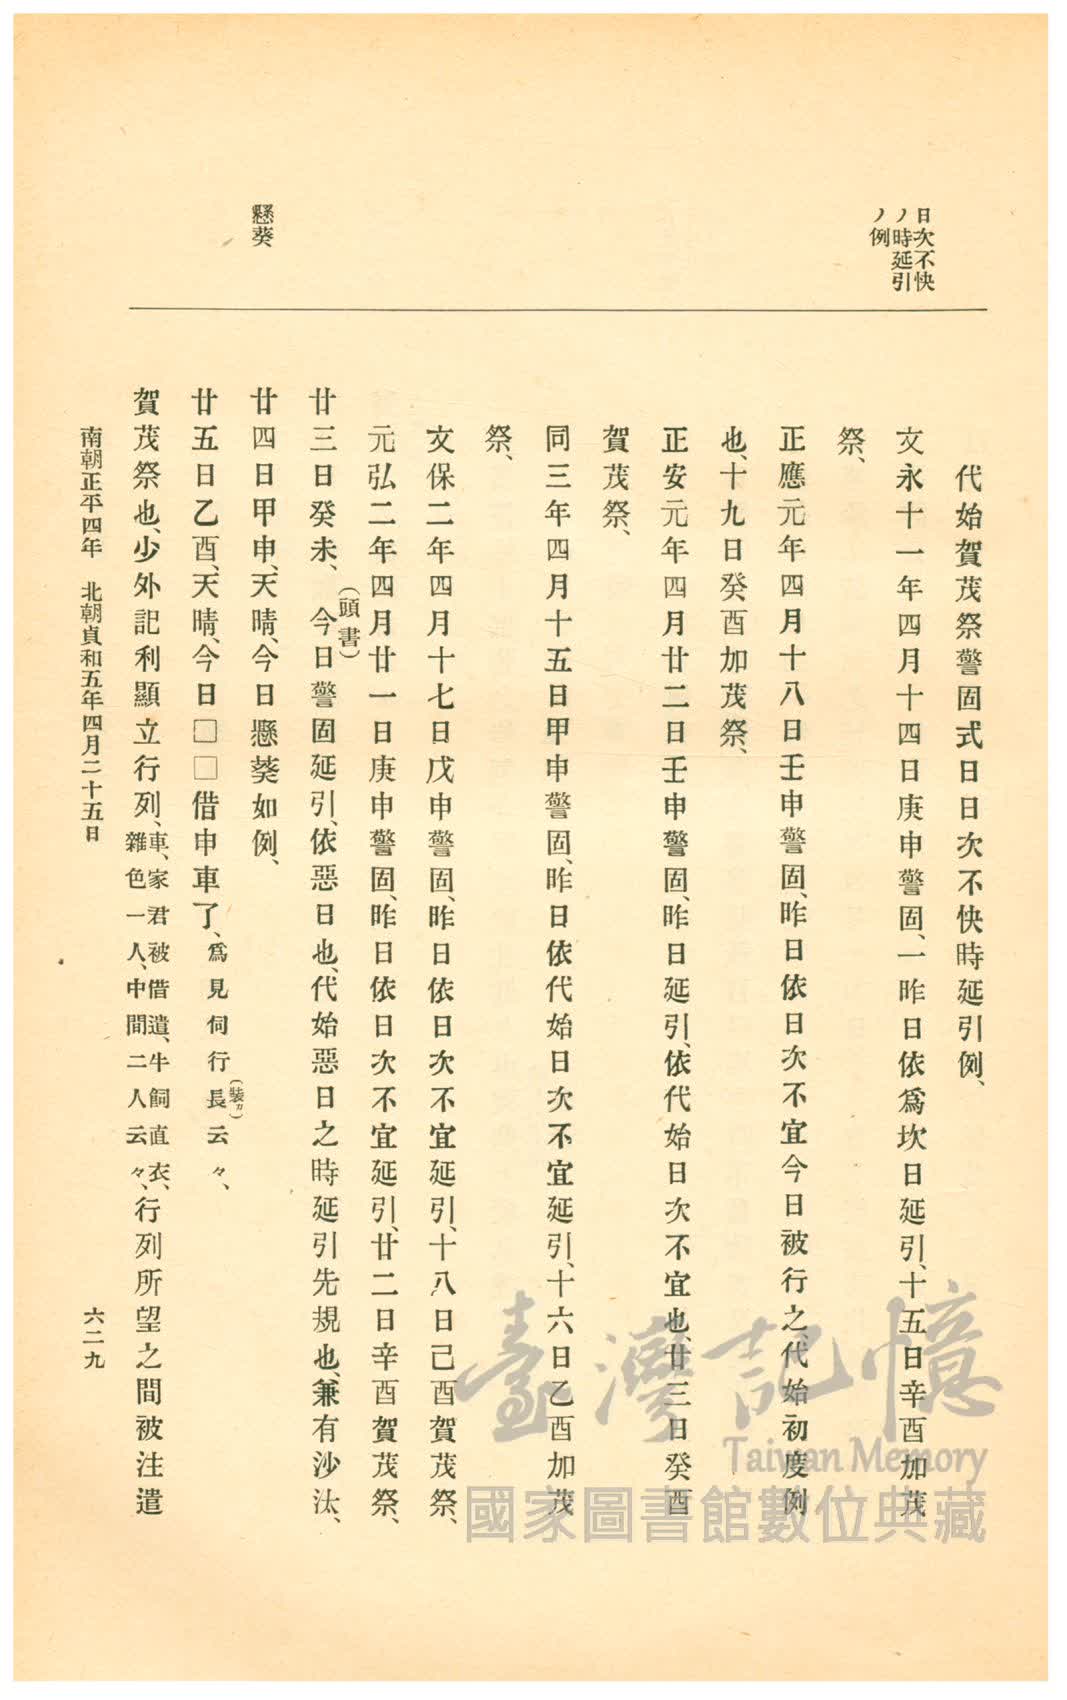 日次不快
ノ時延引
ノ例
懸葵
代始賀茂祭警固式日日次不快時延引例、
文永十一年四月十四日庚申警固、一昨日依爲坎日延引、十五日辛酉加茂
祭、
正應元年四月十八日壬申警固、昨日依日次不宜今日被行之、代始初度例
也、十九日癸酉加茂祭、
正安元年四月廿二日壬申警固、昨日延引、依代始日次不宜也、廿三日癸酉
賀茂祭、
同三年四月十五日甲申警固、昨日依代始日次不宜延引、十六日乙酉加茂
祭、
文保二年四月十七日戊申警固、昨日依日次不宜延引、十八日己酉賀茂祭、
元弘二年四月廿一日庚申警固、昨日依日次不宜延引、廿二日辛酉賀茂祭、
(頭書)
廿三日癸未、今日警固延引、依惡日也、代始惡日之時延引先規也、兼有沙汰、
廿四日甲申、天晴、今日懸葵如例、
廿五日乙酉、天晴、今日□□借申車了、爲見伺行長(裝カ)云々、
賀茂祭也、少外記利顯立行列、車、家君被借遣、牛飼直衣、雜色一人、中間二人云々、行列所望之間被注遣
南朝正平四年 北朝貞和五年四月二十五日
六二九
臺灣記憶
Taiwan Memory
國家圖書館數位典藏